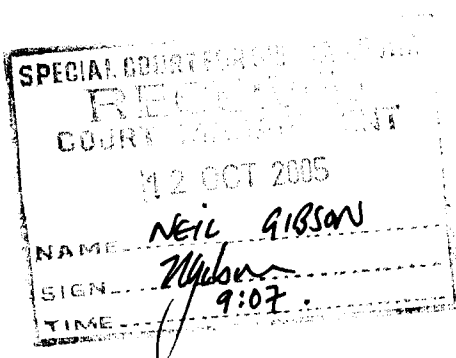 SPECIAL COURT FOR
RECEIVED
COURT MANAGEMENT
12 OCT 2005
NAME NEIL GIBSON
SIGN
TIME 9:07.